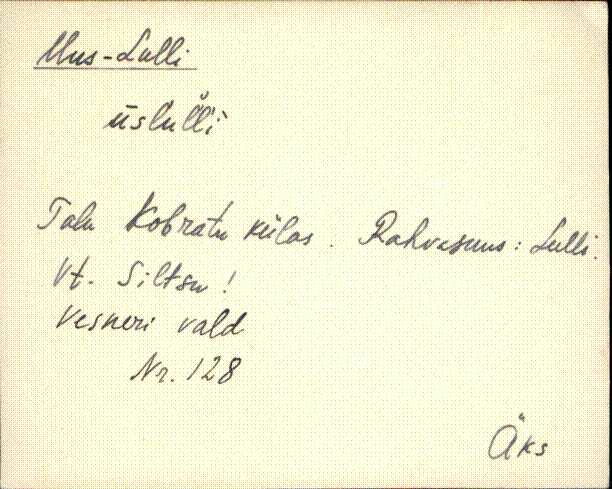 Uus-Lulli
ūslul̆l̀i
Talu Kobratu külas. Rahvasuus: Lulli.
Vt. Siltsu!
Vesneri vald
Nr. 128
Äks